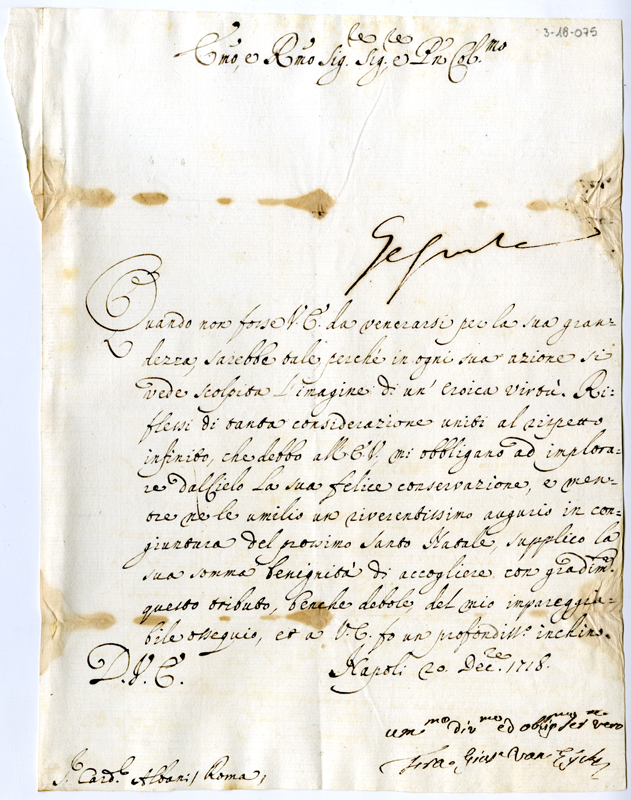 3-18-075
Emo, e Rmo Sig.re Sig.re, e Pn Col.mo
Quando non fosse V. E. da venerarsi per la sua gran=
dezza, sarebbe tale perche in ogni sua azione si
vede scolpita l'imagine di un' eroica virtù. Ri=
flessi di tanta considerazione uniti al rispetto
infinito, che debbo all' E V. mi obbligano ad implora=
re dal Cielo la sua felice conservazione, e men=
tre ne le umilio un riverentissimo augurio in con=
giuntura del prossimo Santo Natale, supplico la
sua somma benignità di accogliere con gradim.to
questo tributo, benche debole del mio impareggia=
bile ossequio, et a V. E. fo un profondiss.o inchino.
D. V. E.
Napoli 20 Dec.re 1718.
um.mo div.mo ed oblig.mo ser.re vero
Fra Gius.e Van Eyck
S.r Card.l Albani / Roma /